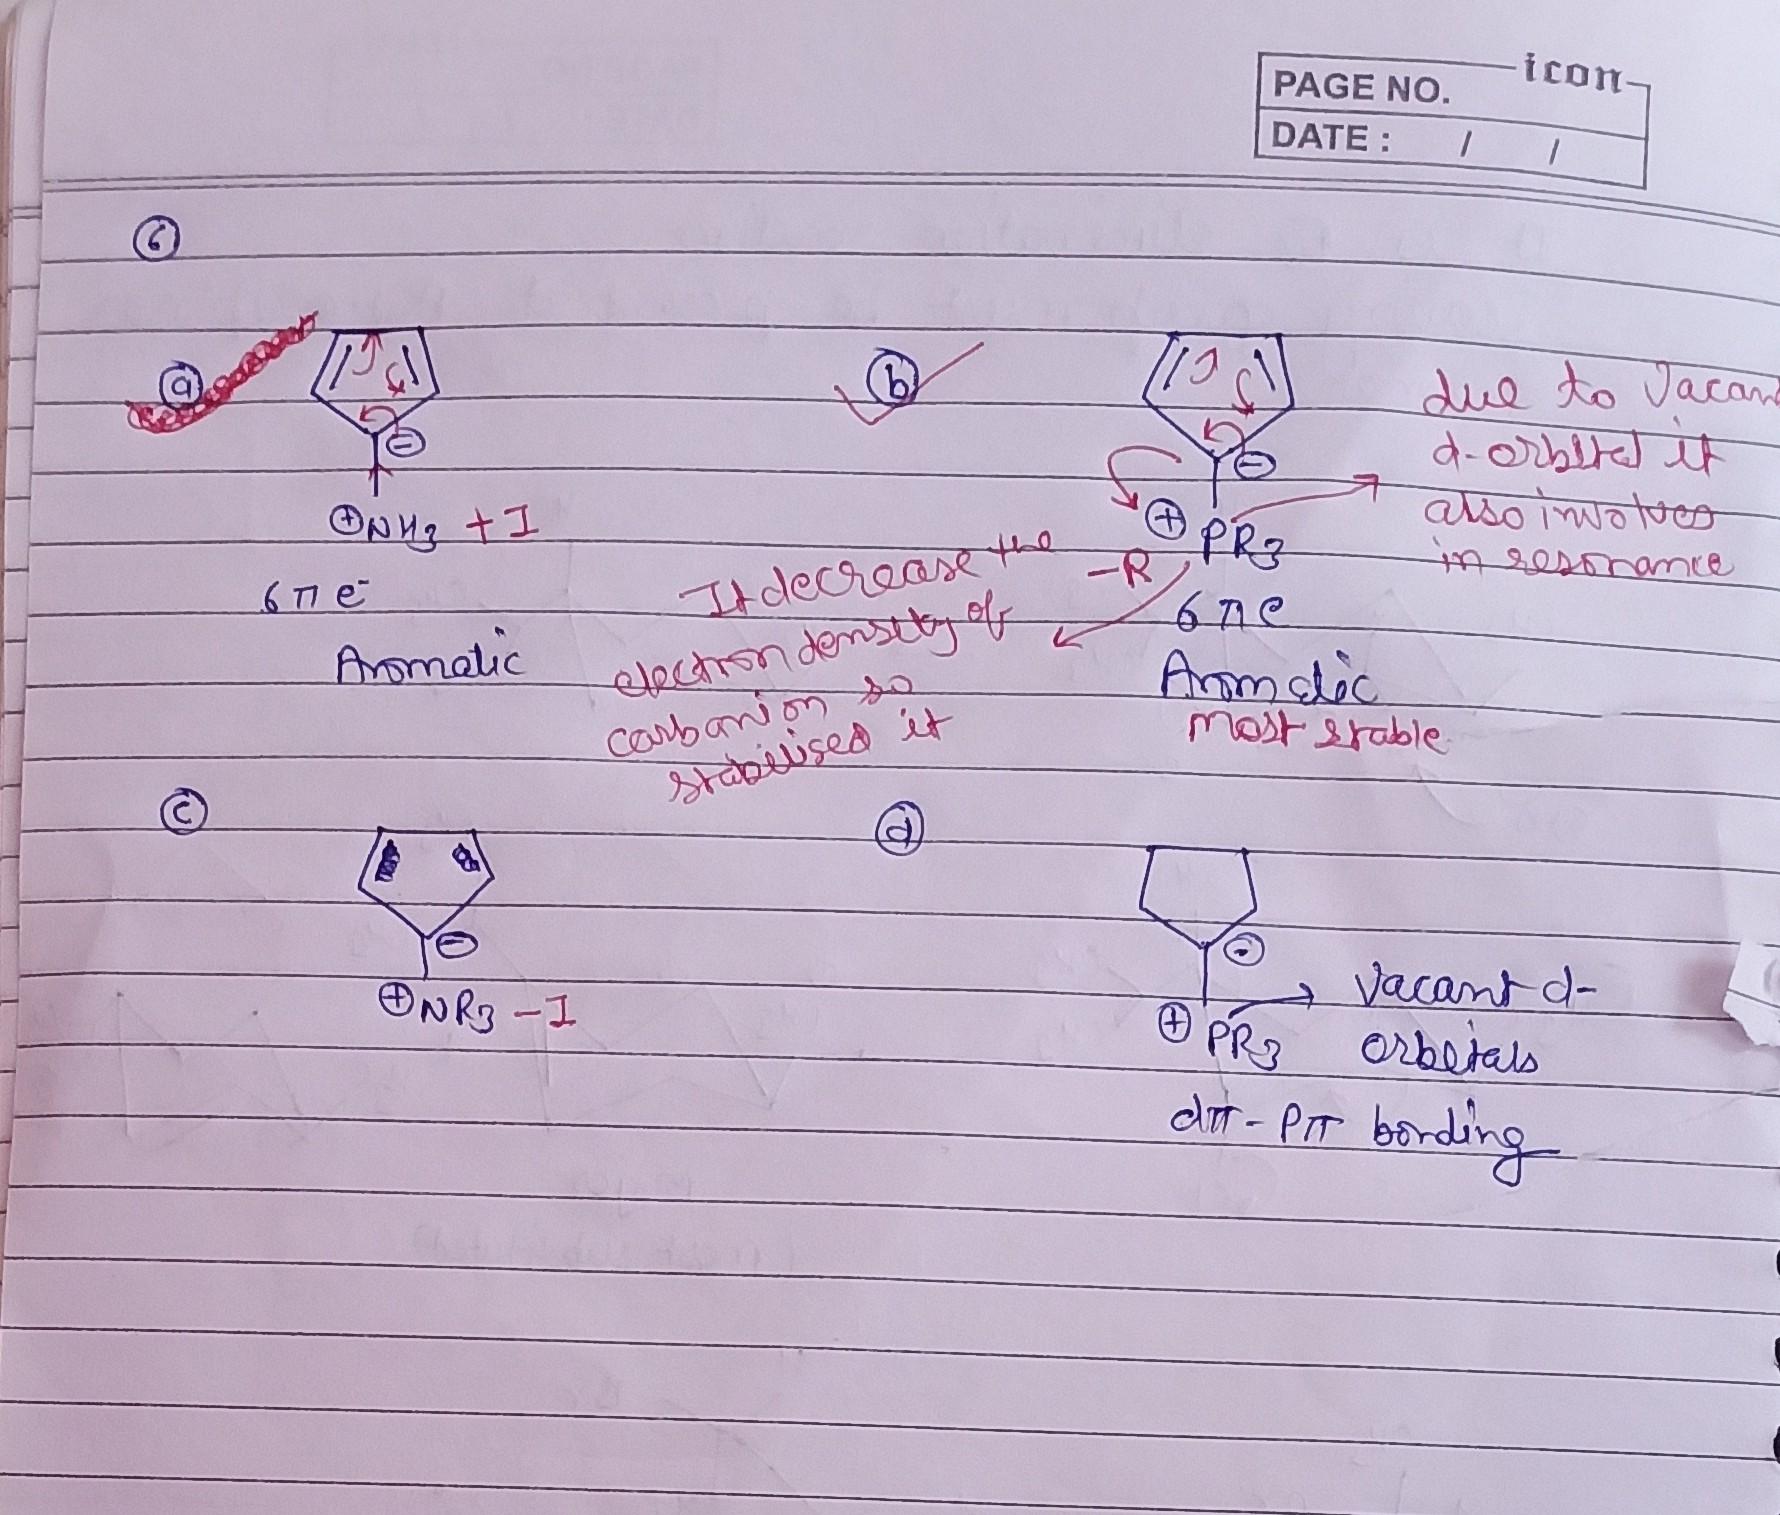 icon
PAGE NO.
DATE : / /
6
a
⊖
⊕NH3 +I
6 π e-
Aromatic
b
⊖
⊕ PR3
-R
6 π e
Aromatic
most stable
due to Vacan
d-orbital it
also involves
in resonance
It decrease the
electron density of
carbanion so
stabilised it
c
⊖
⊕NR3 -I
d
⊖
⊕ PR3
Vacant d-
orbitals
dπ - Pπ bonding